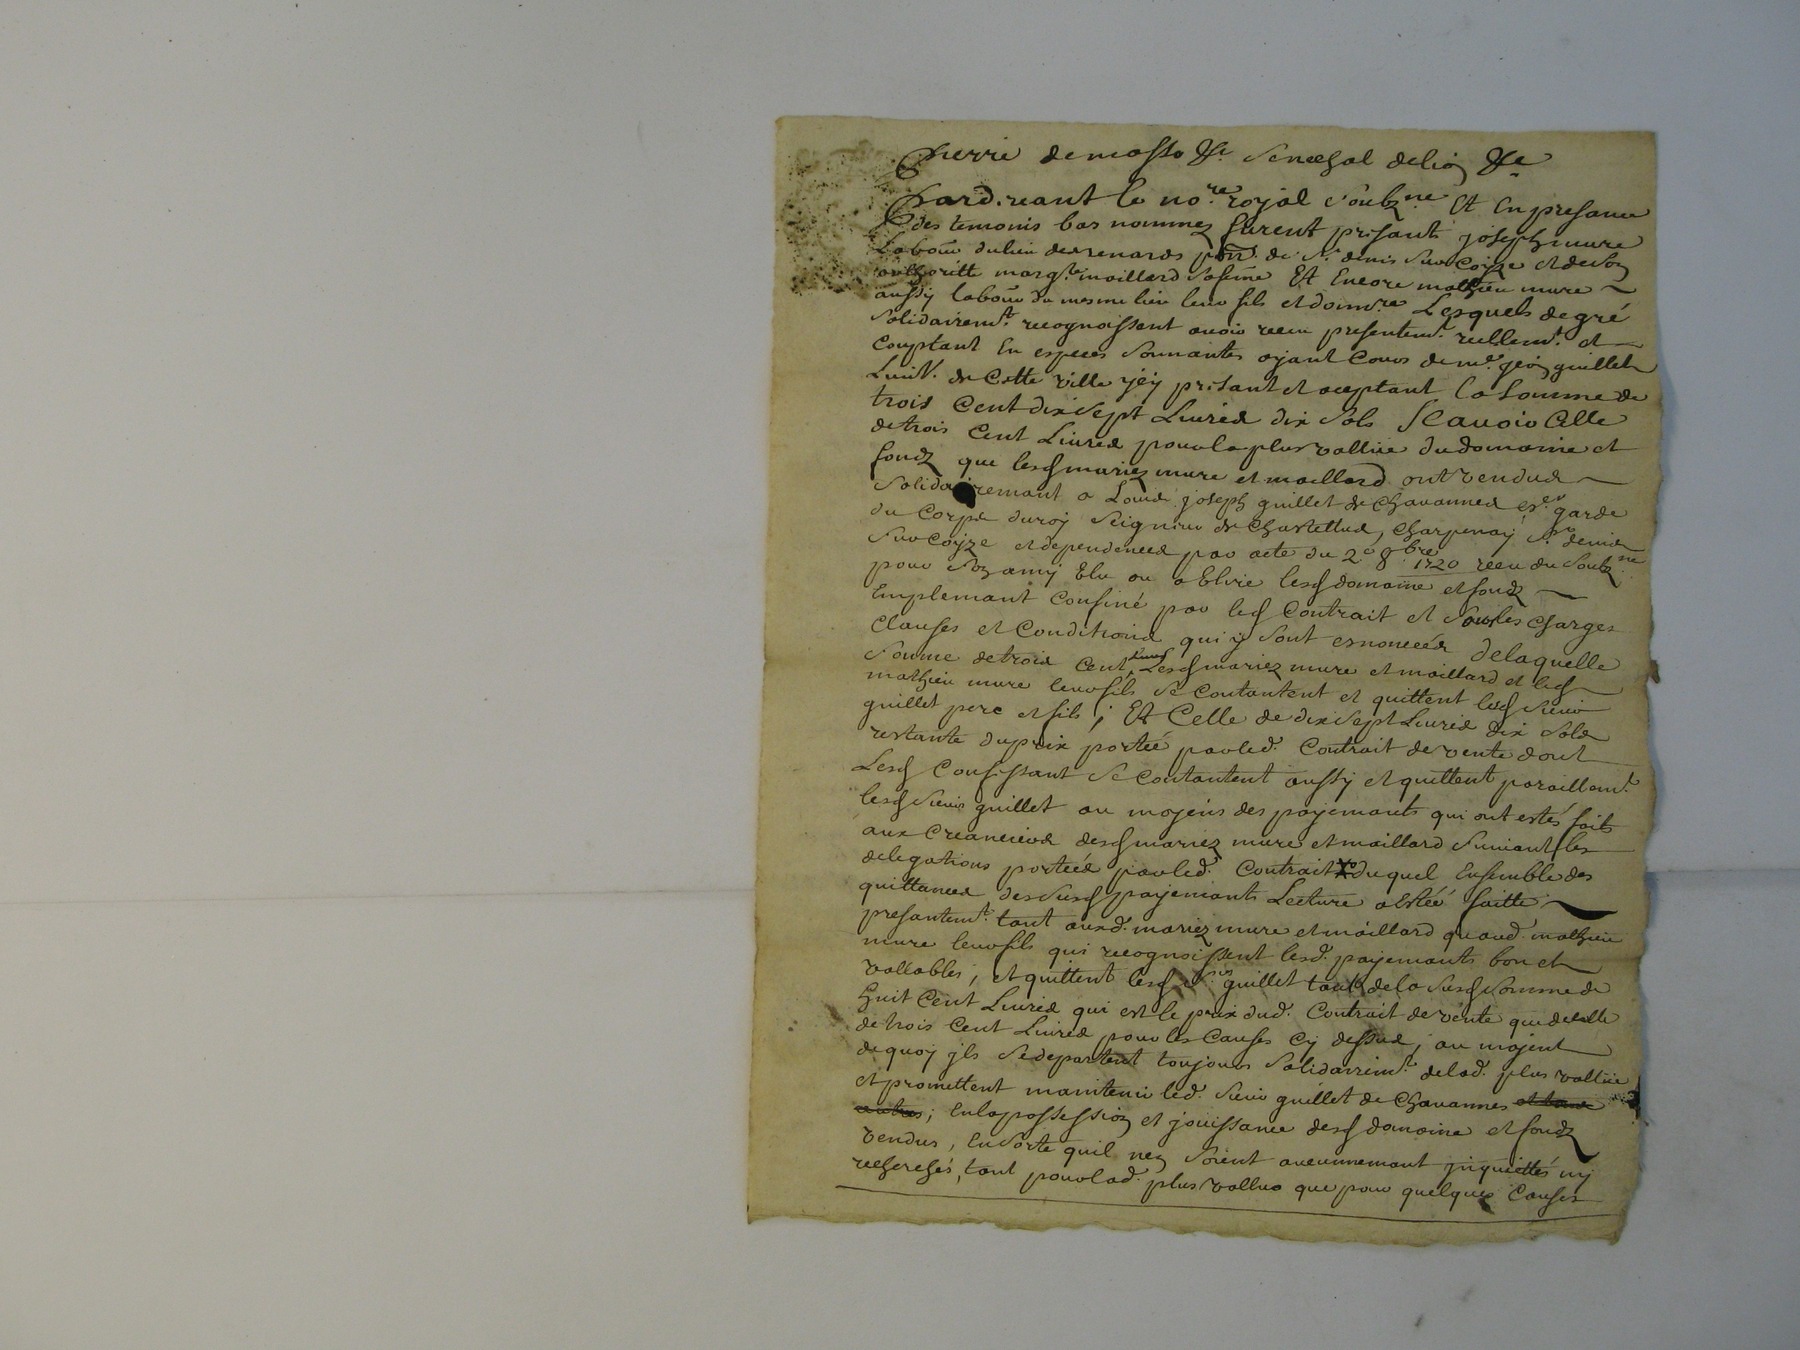 Pierre de masso &c. Senechal de lion &c
Pard.vant le no.re royal soubz.ne Et En presance
des temoins bas nommez furent presants joseph mure
Labou.r du lieu des renards par.se de S.t denis sur Coyze et de son
authoritte marg.te maillard sa feme Et Encore mathieu mure
aussy labou.r du mesme lieu leur fils et donn.re Lesquels de gré
solidairem.t recognoissent avoir receu presentem.t reellem.t et
Comptant En especes sonnantes ayant Cours de m.e jean guillet
de Cette ville jcy present et aceptant la somme de
trois Cent dix sept Livres dix sols scavoir Celle
de trois Cent Livres pour la plus vallüe du domaine et
fondz que lesd mariez mure et maillard ont vendus
solidairemant a Louis joseph guillet de Chavannes es.er garde
du Corps du roy seigneur de Chastellus, Charpenay S.t denis
sur Coyze et dependences par acte du 2.e 8.bre 1720 receu du soubz.ne
pour son amy Elu ou a Elire lesd domaine et fondz
Emplemant Confiné par led Contrait et sous les Charges
Clauses et Conditions qui y sont esnoncées de laquelle
somme de trois Cent livres Lesd mariez mure et maillard et led
mathieu mure leur fils se Contantent et quittent lesd sieur
guillet pere et fils; Et Celle de dix sept Livres dix sols
restante du prix portée par led. Contrait de vente dont
Lesd Confessant se Contantent aussy et quittent paraillem.t
lesd sieurs guillet au moyens des payemants qui ont estés faits
aux Creanciers desd mariez mure et maillard suivant les
delegations portées par led. Contrait duquel Ensemble des
quittances des susd payemants Lecture a Estéé faitte
presantem.t tant auxd. mariez mure et maillard quaud. mathieu
mure leur fils qui recognoissent lesd. payemants bon et
vallables; et quittent lesd S.rs guillet tant de la susd somme de
huit Cent Livres qui est le prix dud. Contrait de vente que de celle
de trois Cent Livres pour les Causes Cy dessus; au moyent
de quoy jls se departent toujours solidairem.t de lad. plus vallüe
et promettent maintenir led. sieur guillet de Chavannes
; En la possession et jouissance desd domaine et fondz
vendus, En sorte quil nen soient aucunnemant jnquiettés ny
recherchés, tant pour lad. plus vallue que pour quelques Causes